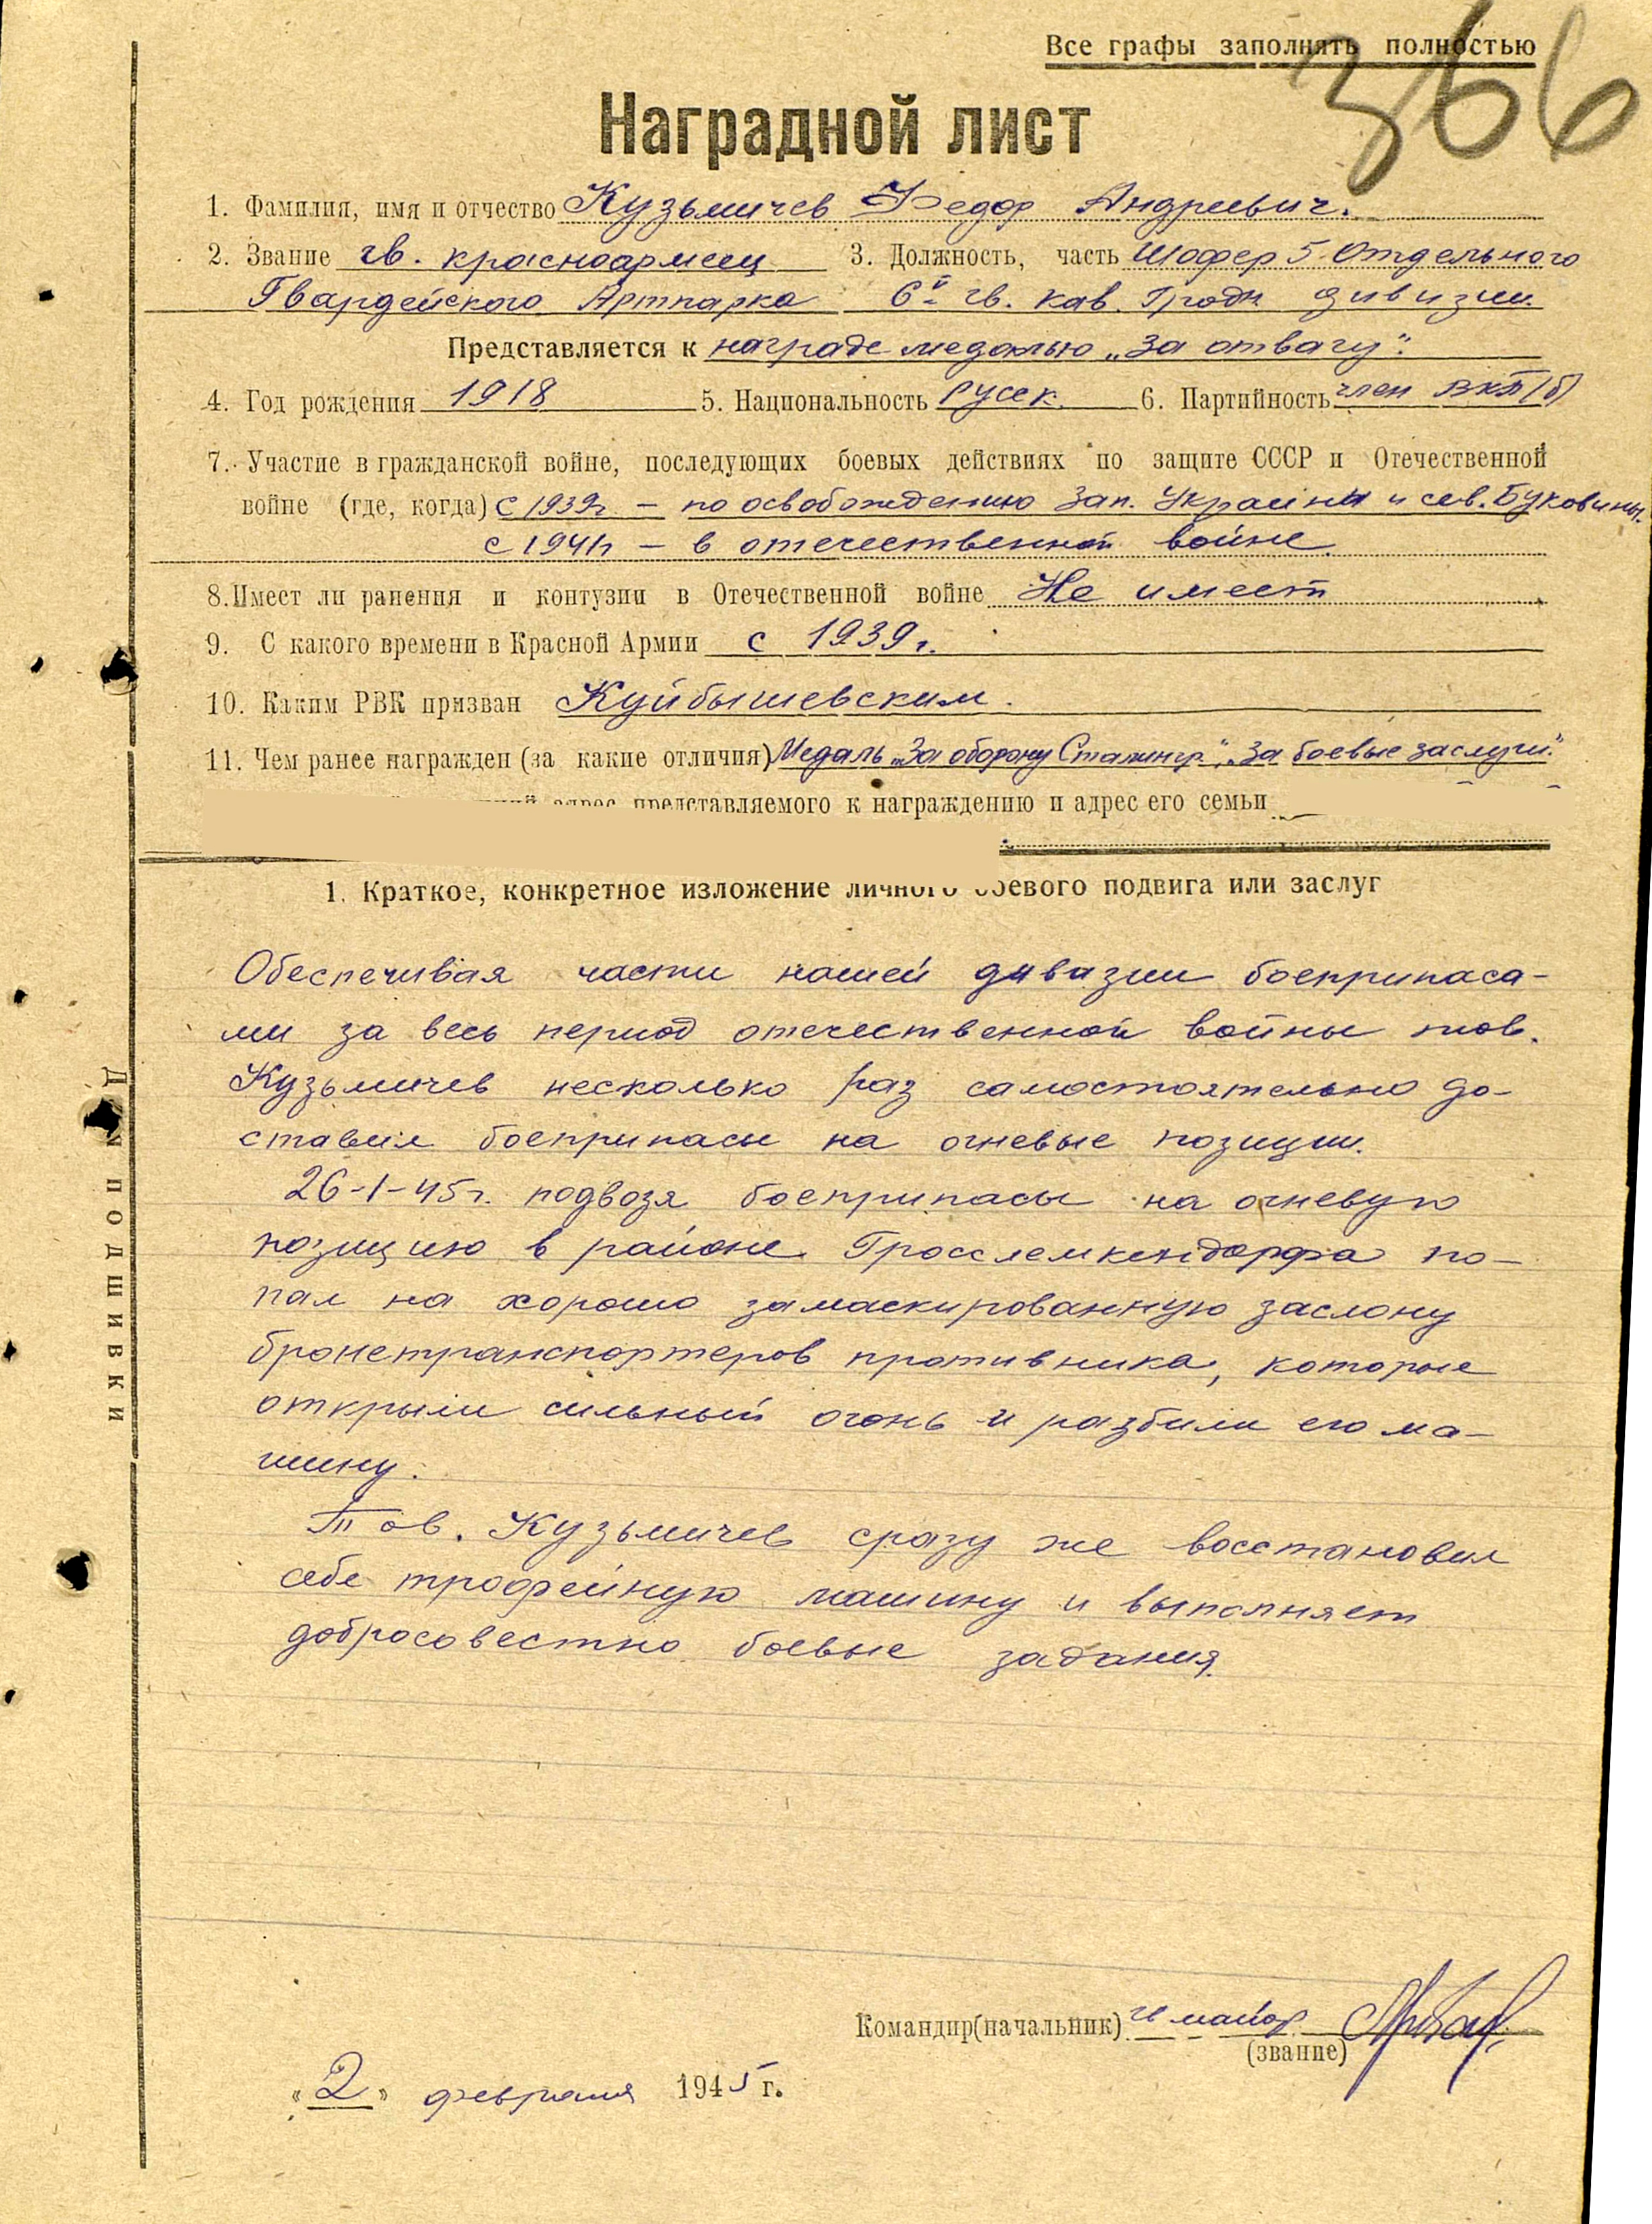 Все графы заполнять полностью
366
Наградной лист
1. Фамилия, имя и отчество Кузьмичев Федор Андреевич.
2. Звание гв. красноармеец 3. Должность, часть Шофер 5 Отдельного
Гвардейского Артпарка 6й гв. кав. Гродн дивизии.
Представляется к награде медалью „За отвагу".
4. Год рождения 1918 5. Национальность русск. 6. Партийность член ВКП(б)
7. Участие в гражданской войне, последующих боевых действиях по защите СССР и Отечественной
войне (где, когда) с 1939г – по освобождению Зап. Украины и сев. Буковины.
с 1941г – в отечественной войне.
8. Имеет ли ранения и контузии в Отечественной войне Не имеет
9. С какого времени в Красной Армии с 1939 г.
10. Каким РВК призван Куйбышевским.
11. Чем ранее награжден (за какие отличия) Медаль „За оборону Сталингр.", „За боевые заслуги".
адрес представляемого к награждению и адрес его семьи
1. Краткое, конкретное изложение личного боевого подвига или заслуг
Обеспечивая части нашей дивизии боеприпаса-
ми за весь период отечественной войны тов.
Кузьмичев несколько раз самостоятельно до-
ставил боеприпасы на огневые позиции.
26-1-45г. подвозя боеприпасы на огневую
позицию в районе Гросслемкендорфа по-
пал на хорошо замаскированную заслону
бронетранспортеров противника, которые
открыли сильный огонь и разбили его ма-
шину.
Тов. Кузьмичев сразу же восстановил
себе трофейную машину и выполняет
добросовестно боевые задания.
Командир (начальник) гв майор
(звание)
«2» февраля 1945 г.
Для подшивки